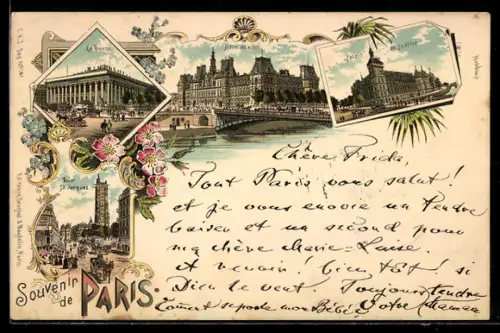 La Bourse
Hôtel de Ville
Palais de Justice
Tour
St. Jacques
Souvenir
de PARIS.
Chère Frida,
Tout Paris vous salut!
et je vous envoie un tendre
baiser et un second pour
ma chère Marie-Louise.
A revoir! bientôt! si
Dieu le veut. Toujours tendre
Votre Maman